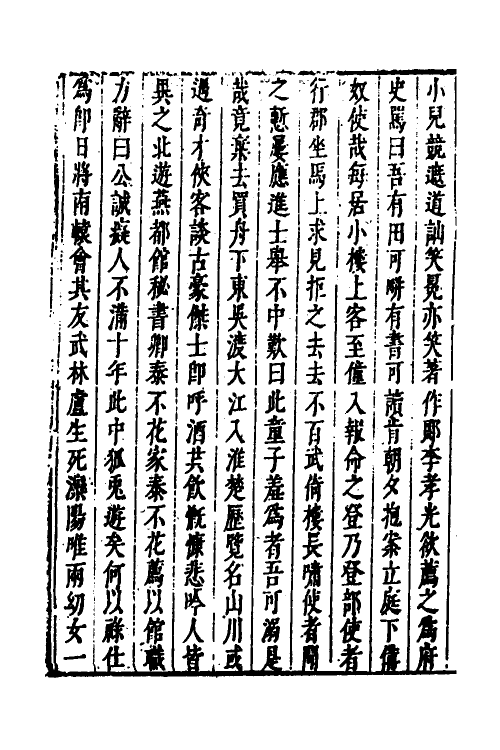 小兒競遮道訕笑冕亦笑著作郎李孝光欲薦之爲府
史罵曰吾有田可畊有書可讀肯朝夕抱案立庭下備
奴使哉每居小樓上客至僮入報命之登乃登部使者
行郡坐馬上求見拒之去去不百武倚樓長嘯使者聞
之慙屢應進士舉不中歎曰此童子羞爲者吾可溺是
哉竟棄去買舟下東吳渡大江入淮楚歷覽名山川或
遇奇才俠客談古豪傑士卽呼酒共飲慨慷悲吟人皆
異之北遊燕都館秘書卿泰不花家泰不花薦以館職
力辭曰公誠癡人不滿十年此中狐兎遊矣何以祿仕
爲卽日將南轅會其友武林盧生死灤陽唯兩幼女一